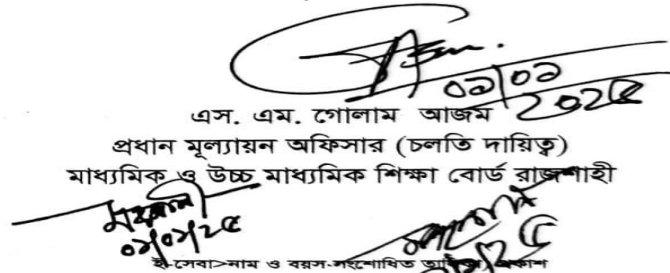 ০৯|০৯
২০২৫
এস. এম. গোলাম আজম
প্রধান মূল্যায়ন অফিসার (চলতি দায়িত্ব)
মাধ্যমিক ও উচ্চ মাধ্যমিক শিক্ষা বোর্ড রাজশাহী
০৯|০৯|২৫
ই-সেবা>নাম ও বয়স-সংশোধিত